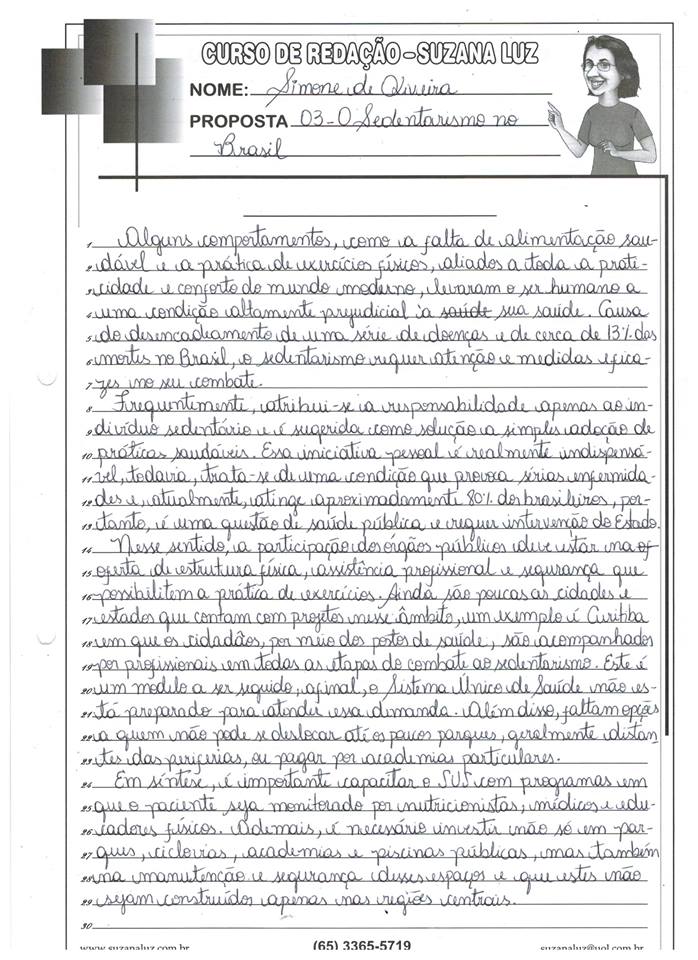 CURSO DE REDAÇÃO - SUZANA LUZ
NOME: Simone de Oliveira
PROPOSTA 03 - O Sedentarismo no
Brasil
1 Alguns comportamentos, como a falta de alimentação sau-
2 dável e a prática de exercícios físicos, aliados a toda a prati-
3 cidade e conforto do mundo moderno, levaram o ser humano a
4 uma condição altamente prejudicial à saúde sua saúde. Causa
5 do desencadeamento de uma série de doenças e de cerca de 13% das
6 mortes no Brasil, o sedentarismo requer atenção e medidas efica-
7 zes no seu combate.
8 Frequentemente, atribui-se a responsabilidade apenas ao in-
9 divíduo sedentário e é sugerida como solução a simples adoção de
10 práticas saudáveis. Essa iniciativa pessoal é realmente indispensá-
11 vel, todavia, trata-se de uma condição que provoca sérias enfermida-
12 des e, atualmente, atinge aproximadamente 80% dos brasileiros, por-
13 tanto, é uma questão de saúde pública e requer intervenção do Estado.
14 Nesse sentido, a participação dos órgãos públicos deve estar na of
15 oferta de estrutura física, assistência profissional e segurança que
16 possibilitem a prática de exercícios. Ainda são poucas as cidades e
17 estados que contam com projetos nesse âmbito, um exemplo é Curitiba
18 em que os cidadãos, por meio dos postos de saúde, são acompanhados
19 por profissionais em todas as etapas do combate ao sedentarismo. Este é
20 um modelo a ser seguido, afinal, o Sistema Único de Saúde não es-
21 tá preparado para atender essa demanda. Além disso, faltam opções
22 a quem não pode se deslocar até os poucos parques, geralmente distan-
23 tes das periferias, ou pagar por academias particulares.
24 Em síntese, é importante capacitar o SUS com programas em
25 que o paciente seja monitorado por nutricionistas, médicos e edu-
26 cadores físicos. Ademais, é necessário investir não só em par-
27 ques, ciclovias, academias e piscinas públicas, mas também
28 na manutenção e segurança desses espaços e que estes não
29 sejam construídos apenas nas regiões centrais.
30
www.suzanaluz.com.br (65) 3365-5719 suzanaluz@uol.com.br